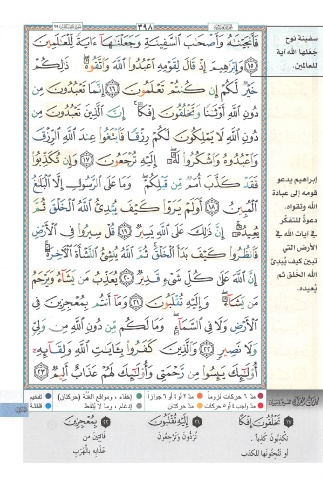 ٣٩٨
فَأَنجَيْنَٰهُ وَأَصْحَٰبَ ٱلسَّفِينَةِ وَجَعَلْنَٰهَآ ءَايَةً لِّلْعَٰلَمِينَ
﴿١٥﴾ وَإِبْرَٰهِيمَ إِذْ قَالَ لِقَوْمِهِ ٱعْبُدُوا۟ ٱللَّهَ وَٱتَّقُوهُ ۖ ذَٰلِكُمْ
خَيْرٌ لَّكُمْ إِن كُنتُمْ تَعْلَمُونَ ﴿١٦﴾ إِنَّمَا تَعْبُدُونَ مِن
دُونِ ٱللَّهِ أَوْثَٰنًا وَتَخْلُقُونَ إِفْكًا ۚ إِنَّ ٱلَّذِينَ تَعْبُدُونَ مِن
دُونِ ٱللَّهِ لَا يَمْلِكُونَ لَكُمْ رِزْقًا فَٱبْتَغُوا۟ عِندَ ٱللَّهِ ٱلرِّزْقَ
وَٱعْبُدُوهُ وَٱشْكُرُوا۟ لَهُۥٓ ۖ إِلَيْهِ تُرْجَعُونَ ﴿١٧﴾ وَإِن تُكَذِّبُوا۟
فَقَدْ كَذَّبَ أُمَمٌ مِّن قَبْلِكُمْ ۖ وَمَا عَلَى ٱلرَّسُولِ إِلَّا ٱلْبَلَٰغُ
ٱلْمُبِينُ ﴿١٨﴾ أَوَلَمْ يَرَوْا۟ كَيْفَ يُبْدِئُ ٱللَّهُ ٱلْخَلْقَ ثُمَّ
يُعِيدُهُۥٓ ۚ إِنَّ ذَٰلِكَ عَلَى ٱللَّهِ يَسِيرٌ ﴿١٩﴾ قُلْ سِيرُوا۟ فِى ٱلْأَرْضِ
فَٱنظُرُوا۟ كَيْفَ بَدَأَ ٱلْخَلْقَ ۚ ثُمَّ ٱللَّهُ يُنشِئُ ٱلنَّشْأَةَ ٱلْءَاخِرَةَ ۚ
إِنَّ ٱللَّهَ عَلَىٰ كُلِّ شَىْءٍ قَدِيرٌ ﴿٢٠﴾ يُعَذِّبُ مَن يَشَآءُ وَيَرْحَمُ
مَن يَشَآءُ ۖ وَإِلَيْهِ تُقْلَبُونَ ﴿٢١﴾ وَمَآ أَنتُم بِمُعْجِزِينَ فِى
ٱلْأَرْضِ وَلَا فِى ٱلسَّمَآءِ ۖ وَمَا لَكُم مِّن دُونِ ٱللَّهِ مِن وَلِىٍّ
وَلَا نَصِيرٍ ﴿٢٢﴾ وَٱلَّذِينَ كَفَرُوا۟ بِـَٔايَٰتِ ٱللَّهِ وَلِقَآئِهِۦٓ
أُو۟لَٰٓئِكَ يَئِسُوا۟ مِن رَّحْمَتِى وَأُو۟لَٰٓئِكَ لَهُمْ عَذَابٌ أَلِيمٌ ﴿٢٣﴾
سفينة نوح
جعلها الله آية
للعالمين.
إبراهيم يدعو
قومه إلى عبادة
الله وتقواه.
دعوة للتفكر
في آيات الله في
الأرض التي
تبين كيف يُبدئ
الله الخلق ثم
يعيده.
مدّ ٦ حركات لزوماً مدّ ٢ أو ٤ أو ٦ جوازاً إخفاء، ومواقع الغُنّة (حركتان) تفخيم
مدّ واجب ٤ أو ٥ حركات مدّ حركتان إدغام، وما لا يُلفظ قلقلة
١٧ تَخْلُقُونَ إِفْكًا
تكذبون كذباً.
أو تنحتونها للكذب
٢١ إِلَيْهِ تُقْلَبُونَ
تُرَدُّونَ وتَرْجِعُونَ
٢٢ بِمُعْجِزِينَ
فائتين من
عذابه بالهرب